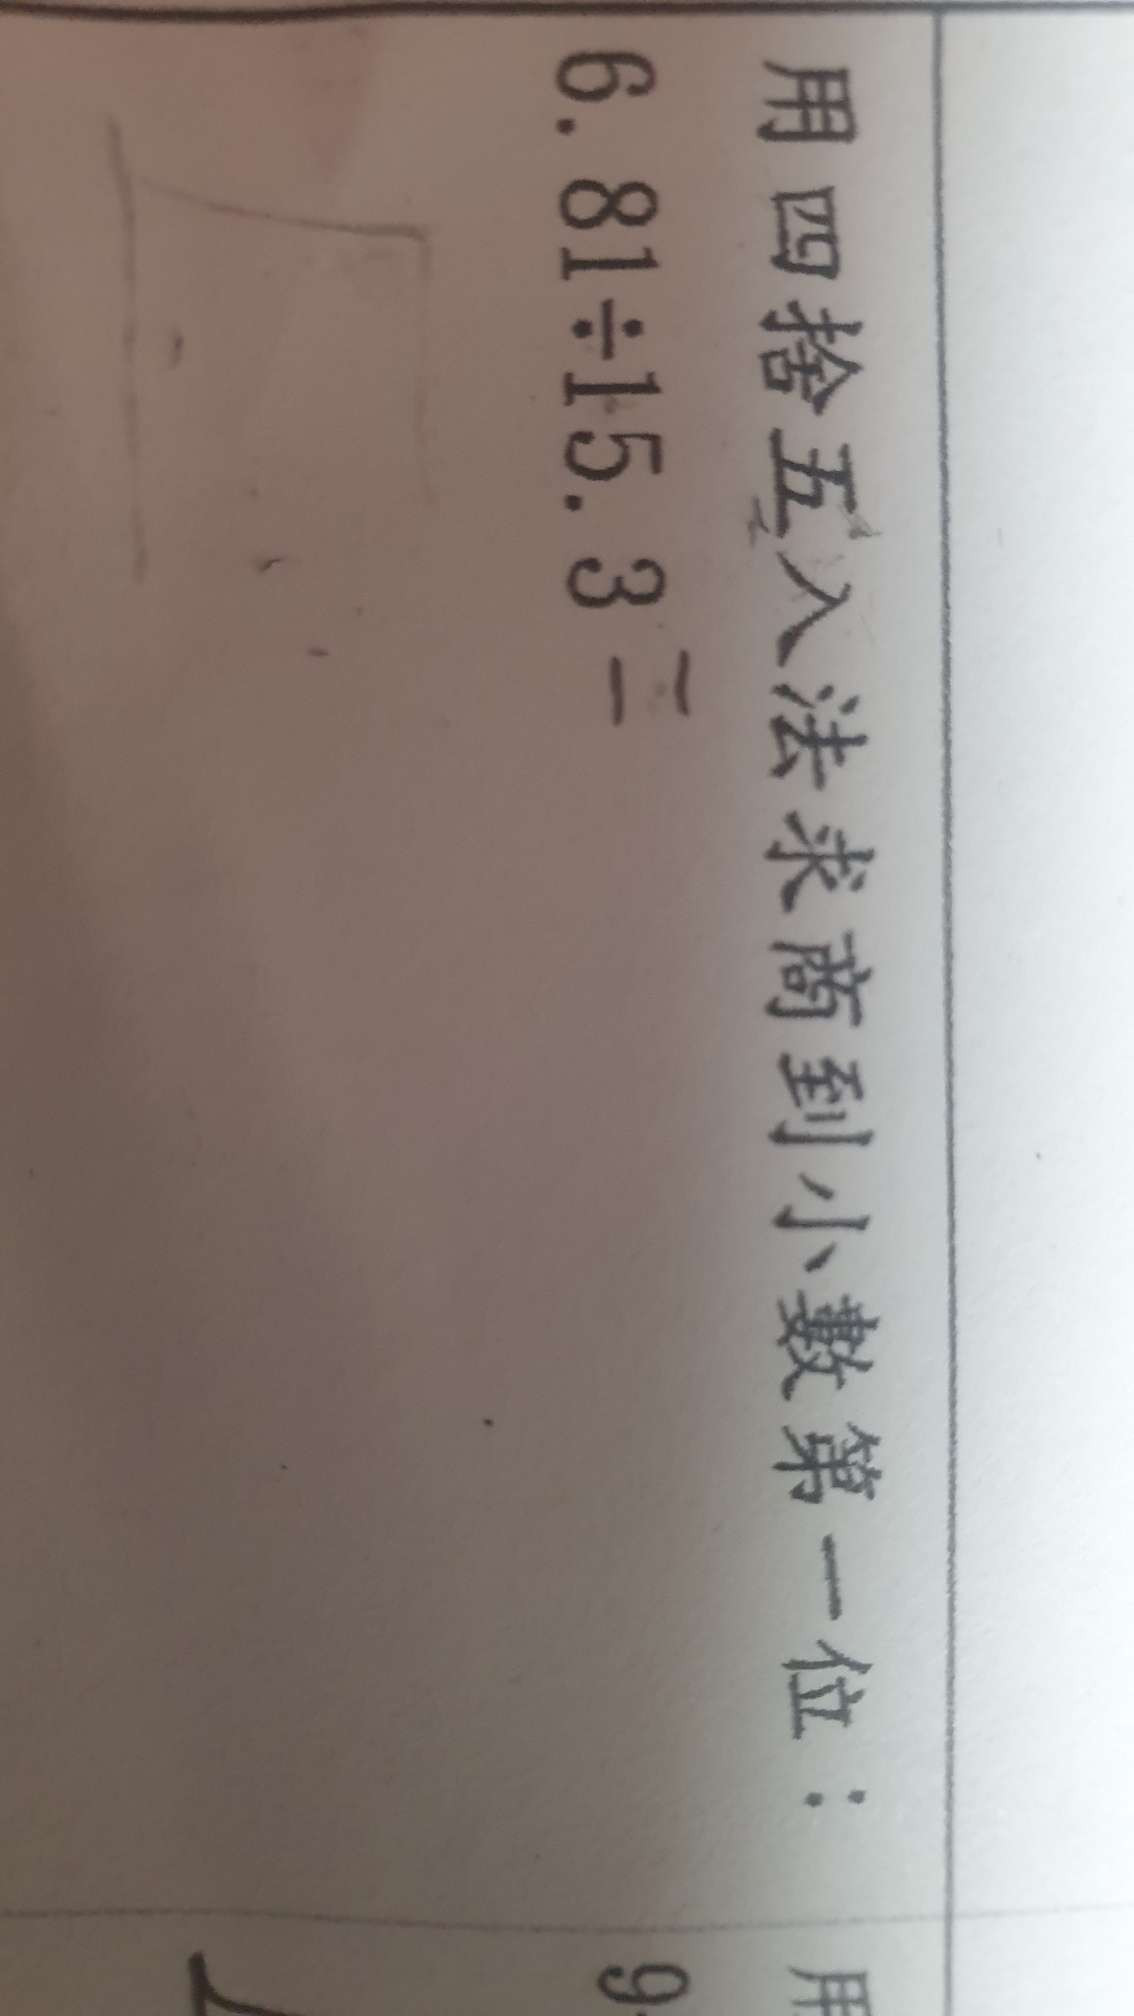 用四捨五入法求商到小數第一位：
6.81÷15.3=
用
9